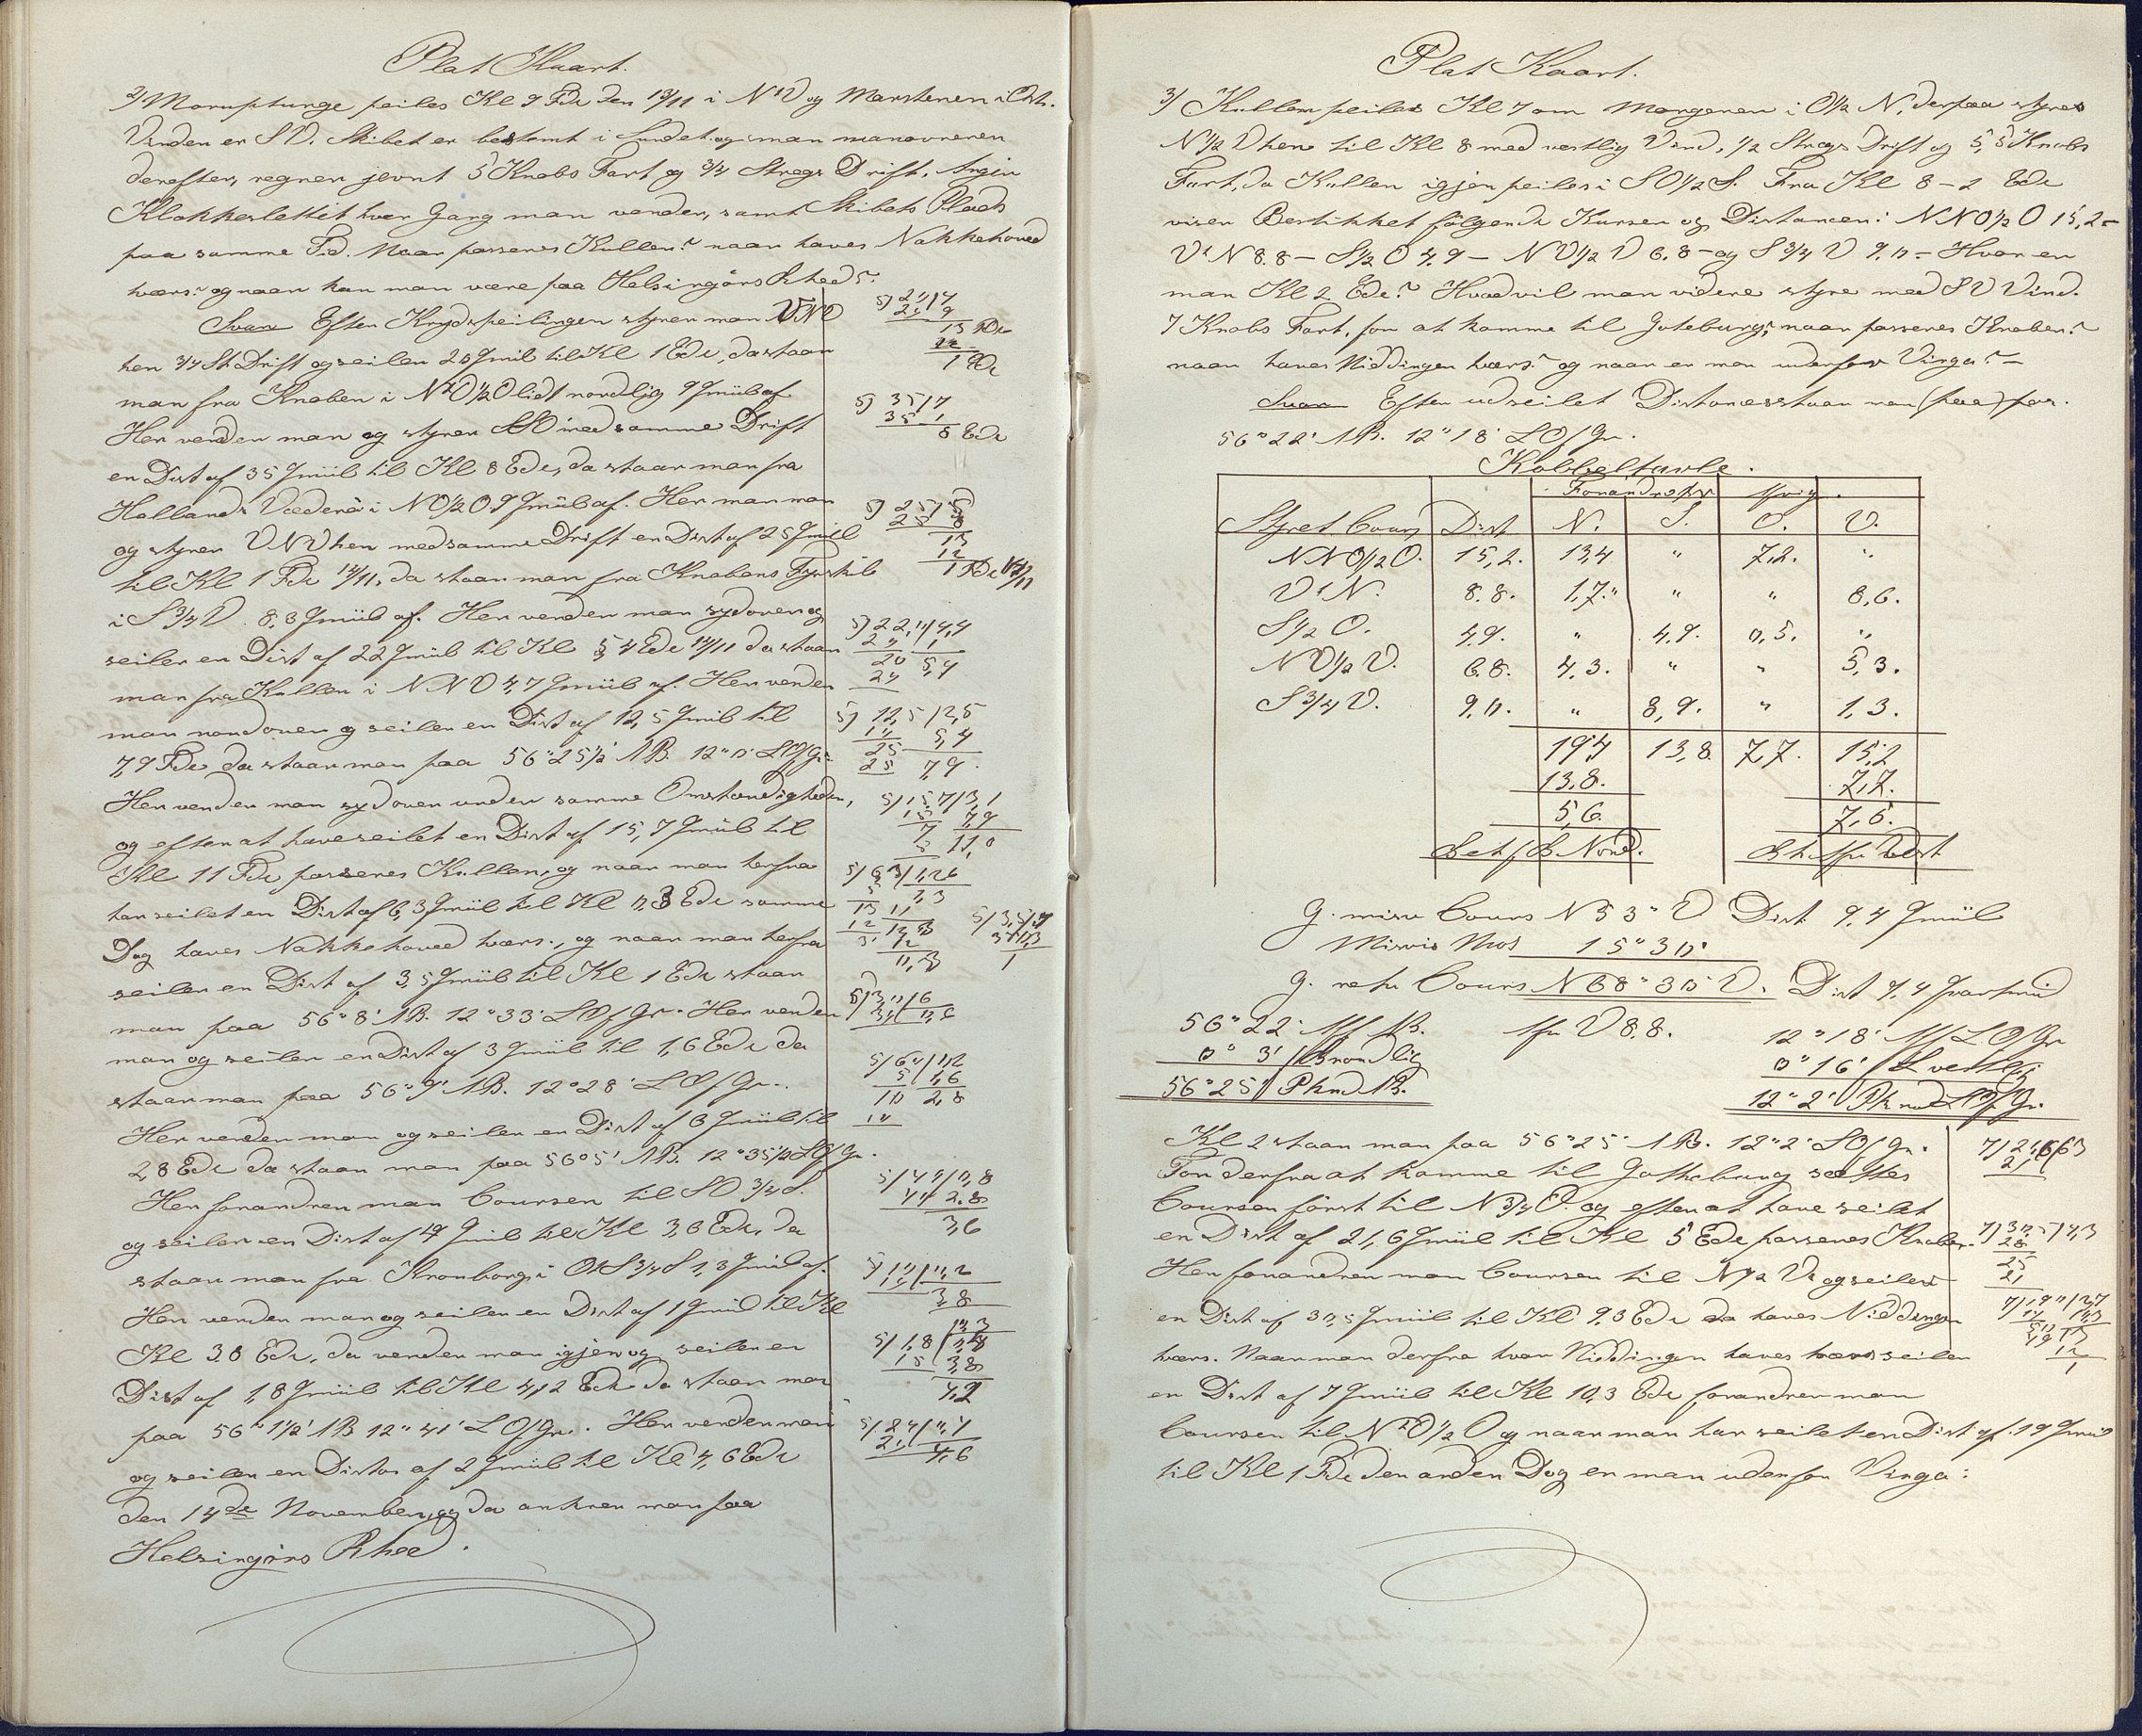 Plat Kaart.
2) Moruptunge peiles Kl 9 Fde den 13/11 i NtO og Marstenen i Ost.
Vinden er SV. Skibet er bestemt i Sundet og man manovrerer
derefter, regner jevnt 5 Knobs Fart og 3/4 Stregs Drift. Angiv
Klokkeslettet hver Gang man vender, samt Skibets Plads
paa samme Tid. Naar passeres Kullen? naar haves Nakkehoved
tværs? og naar kan man være paa Helsingørs Rhed?
Svar Efter Krydspeilingen styrer man VNV
hen 3/4 St Drift og seiler 20 Qmiil til Kl 1 Ede, da staar
man fra Knoben i NtO1/2O lidt nordlig 9 Qmiil af
Her vender man og styrer SSO med samme Drift
en Dist af 35 Qmiil til Kl 8 Ede, da staar man fra
Hallands Vaderö i NO1/2O 9 Qmiil af. Her man
og styrer VNV hen med samme Drift en Dist af 25 Qmiil
til Kl 1 Fde 14/11, da staar man fra Knobens Fyrskib
i S3/4V 8,3 Qmiil af. Her vender man sydover og
seiler en Dist af 22 Qmiil til Kl 5,4 Ede 14/11 da staar
man fra Kullen i NNV 4,7 Qmiil af. Her vender
man nordover og seiler en Dist af 12,5 Qmiil til
7,9 Fde, da staar man paa 56°25 1/2' NB. 12°0' LO f Gr.
Her vender man sydover under samme Omstændigheder,
og efter at have seilet en Dist af 15,7 Qmiil til
Kl 11 Fde passeres Kullen, og naar man herfra
har seilet en Dist af 6,3 Qmiil til Kl 0,3 Ede samme
Dag haves Nakkehoved tværs., og naar man herfra
seiler en Dist af 3,5 Qmiil til Kl 1 Ede staar
man paa 56°8' NB. 12°33' LO f Gr. Her vender
man og seiler en Dist af 3 Qmiil til 1,6 Ede da
staar man paa 56°9' NB. 12°28' LO f Gr.
Her vender man og seiler en Dist af 6 Qmiil til
2,8 Ede da staar man paa 56°5' NB. 12°35 1/2' LO f Gr.
Her forandrer man Coursen til SO3/4S.
og seiler en Dist af 4 Qmiil til Kl 3,6 Ede, da
staar man fra Kronborg i OtS3/4S 1,3 Qmiil af.
Her vender man og seiler en Dist af 1 Qmiil til Kl
Kl 3,8 Ede, da vender man igjen og seiler en
Dist af 1,8 Qmiil til Kl 4,2 Ede da staar man
paa 56°1 1/2' NB 12°41' LO f Gr. Her vender man
og seiler en Distas af 2 Qmiil til Kl 4,6 Ede
den 14de November, og da ankrer man paa
Helsingørs Rhed.
5) 20/4
20 9
13 Fde
12
1 Ede
5) 35/7
35 1
8 Ede
5) 25/5
25 8
13
12
1 Fde 14/11
5) 22,0/4,4
20 1
20 5,4
20
5) 12,5/2,5
10 5,4
25 7,9
25
5) 15,7/3,1
15 7,9
7 11,0
5
5) 6,3/1,26
5) 3,5/0,7
5) 3,0/6
5) 6,0/1,2
5 1,6
10 2,8
10
5) 4,0/0,8
40 2.8
3,6
5) 1,0/0,2
3,8
5) 1,8/
15 3,8
4,2
5) 2,0/0,4
20 4,6
Plat Kaart.
3) Kullen peiles Kl 7 om Morgenen i O1/2N, derpaa styres
N1/2V hen til Kl 8 med vestlig Vind, 1/2 Stregs Drift og 5,5 Knobs
Fart, da Kullen igjen peiles i SO1/2S. Fra Kl 8 – 2 Ede
viser Bestikket følgende Kurser og Distancer: NNO1/2O 15,2 –
VtN 8.8 – S1/2O 4,9 – NV1/2V 6.8 – og S3/4V 9.0 – Hvor er
man Kl 2 Ede? Hvad vil man videre styre med SV Vind.
7 Knobs Fart, for at komme til Goteburg? naar passeres Knoben?
naar haves Niddingen tværs? og naar er man udenfor Vinga? –
Svar Efter udseilet Distance staar man (paa) paa.
56°22' NB. 12°18' LO f Gr.
Kobbeltavle.
Forandr. Afvig.
Styret Cours Dist N. S. O. V.
NNO1/2O. 15,2. 13,4 " 7,2. "
VtN. 8.8. 1,7. " " 8,6.
S1/2O. 4,9. " 4,9. 0,5. "
NV1/2V. 6.8. 4,3. " " 5,3.
S3/4V. 9,0. " 8,9. " 1,3.
19,4 13,8. 7,7. 15,2
13,8. 7,7.
5,6. 7,5.
Beh f B Nord. Bh Afv Vest
G. misv Cours N 53° V Dist 9,4 Qmiil
Misvis Mod 15°30'
G. retv Cours N 68°30' V. Dist 9,4 Qvartmiil
56°22' Aff B. Afv V 8.8. 12°18' Aff LO f Gr
0° 3' f B nordlig 0°16' f L vestlig
56°25' Pkmd NB. 12°2' Pkmd LO f Gr.
Kl 2 staar man paa 56°25' NB. 12°2' LO f Gr.
For derfra at komme til Gotheburg sættes
Coursen först til N3/4O. og efter at have seilet
en Dist af 21,6 Qmiil til Kl 5 Ede passeres Knoben.
Her forandrer man Coursen til N1/2V og seiler
en Dist af 30,5 Qmiil til Kl 9,3 Ede da haves Niddingen
tværs. Naar man derfra hvor Niddingen haves tværs seiler
en Dist af 7 Qmiil til Kl 10,3 Ede forandrer man
Coursen til NtO1/2O og naar man har seilet en Dist af 19 Qmiil
til Kl 1 Fde den anden Dag er man udenfor Vinga:
7) 30,5/4,3
28
25
21
7) 19,0/2,7